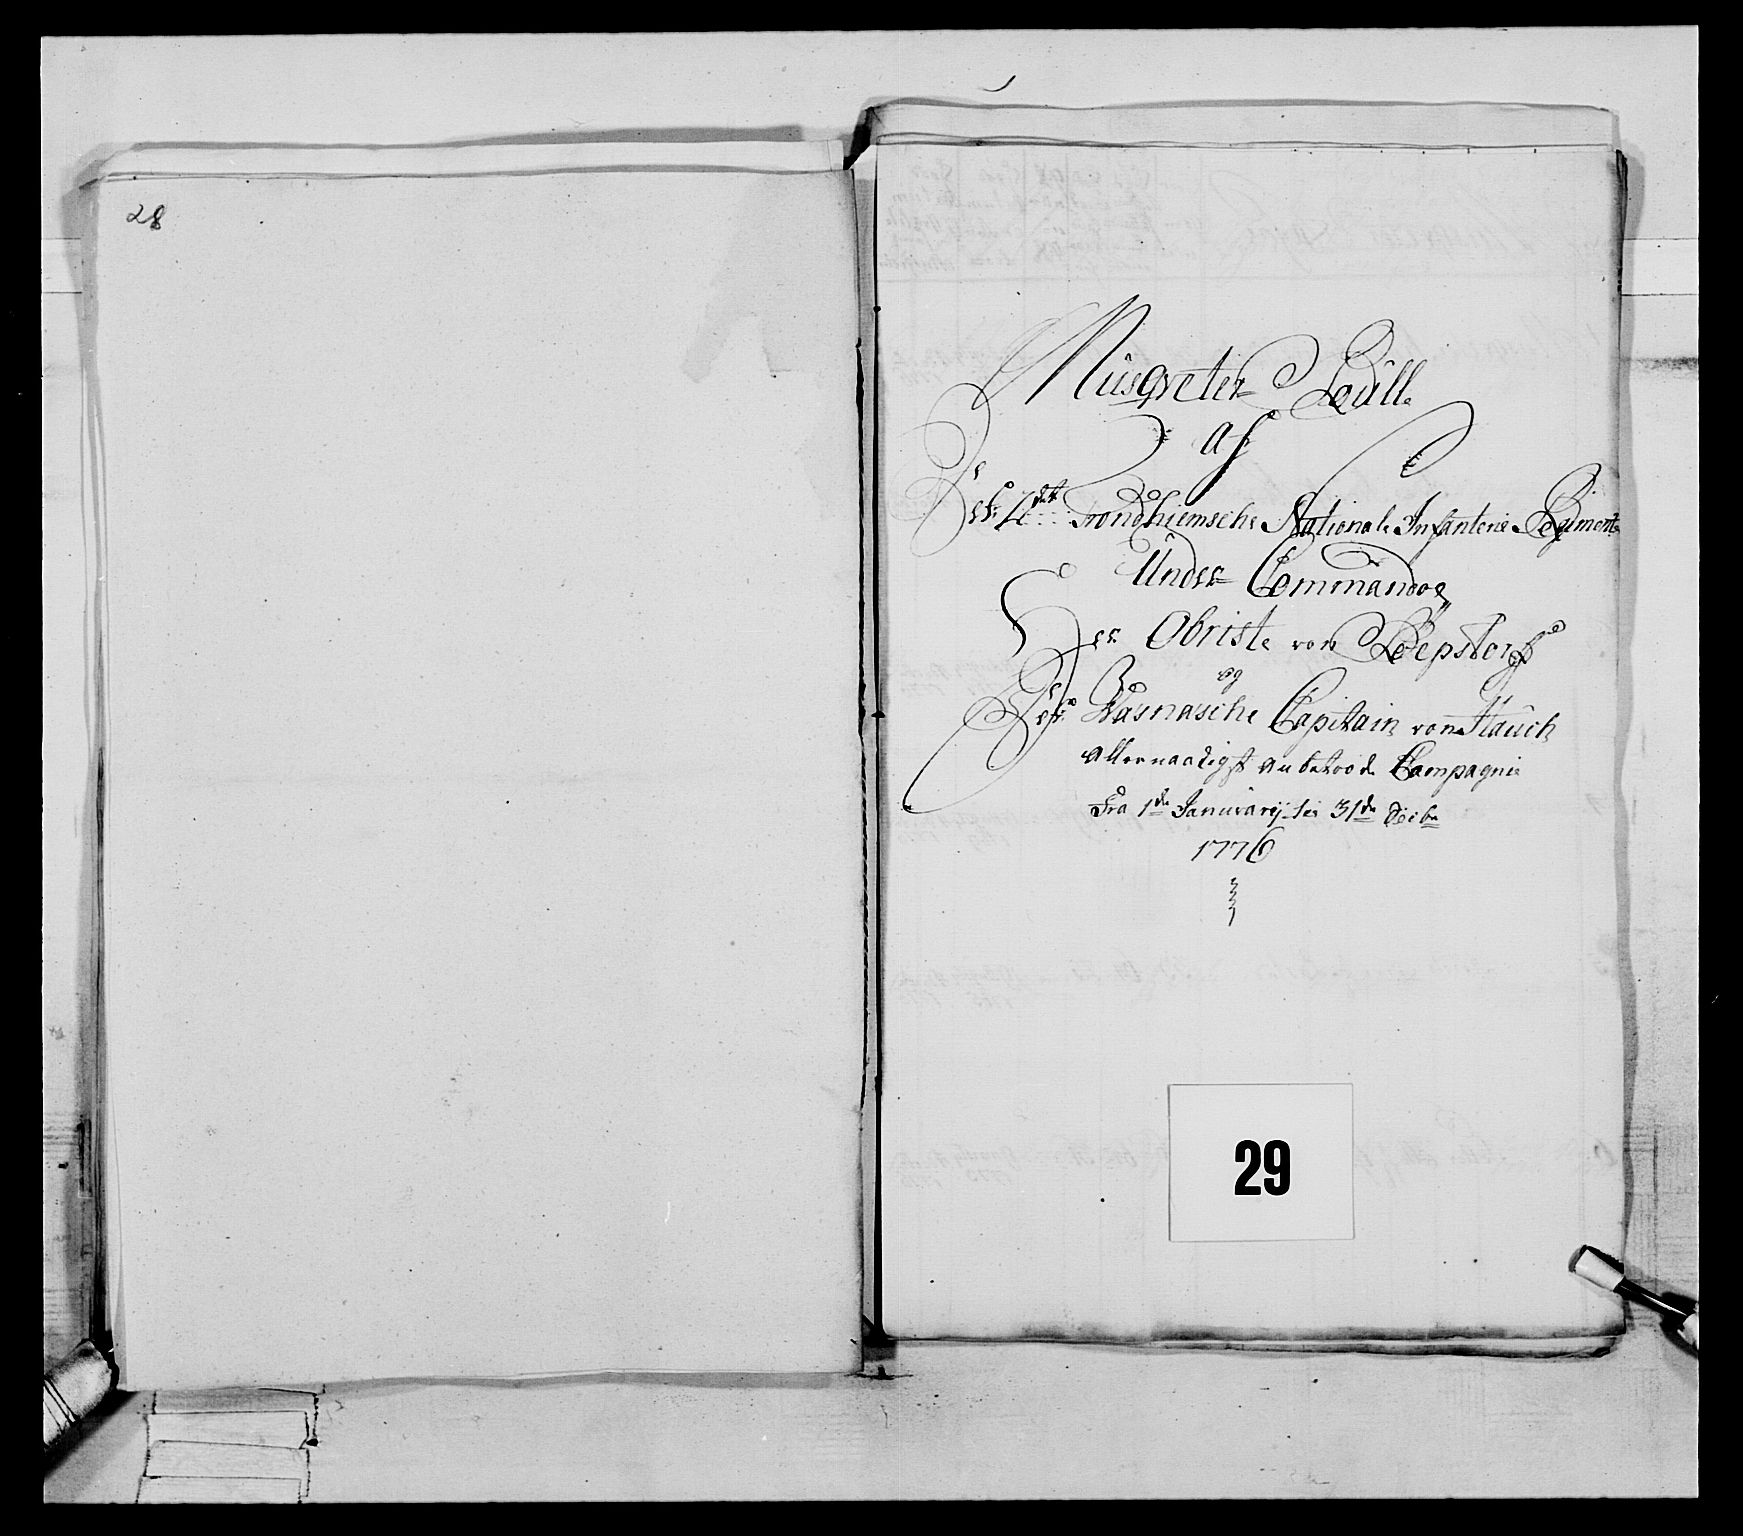 28
Müsqveter Rüll
af
Det 2det Trondhiemsche National Infanterie Regiment
Under Commando
Hr Obriste von Repstorff
og
Det Wærnæsche Capitain von Hauch
allernaadigst anbetroede Compagnie
Fra 1de Januarij til 31de Decbr
1776
29